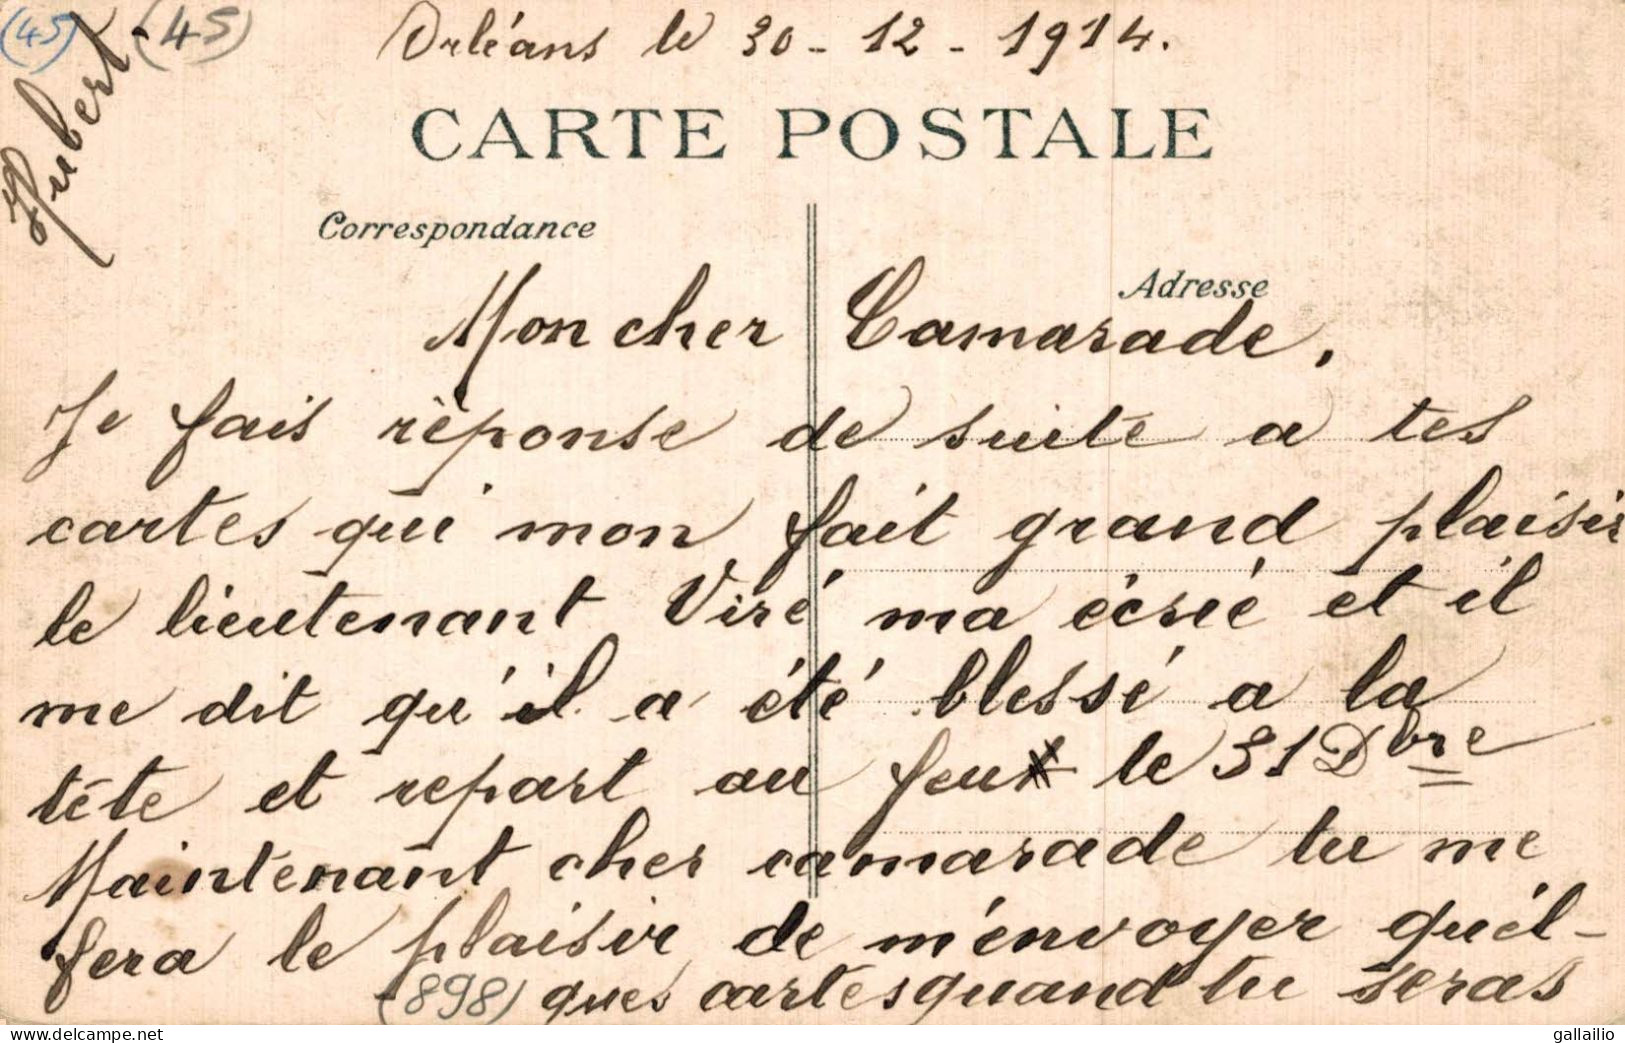 (45)
(45)
Hubert
Orléans le 30-12-1914.
CARTE POSTALE
Correspondance
Adresse
Mon cher Camarade,
Je fais réponse de suite a tes
cartes qui mon fait grand plaisir
le lieutenant Viré ma écrié et il
me dit qu'il a été blessé a la
tête et repart au feu le 31 Dbre
Maintenant cher camarade tu me
fera le plaisir de m'envoyer quél-
(898) ques cartes quand tu seras
gallailio